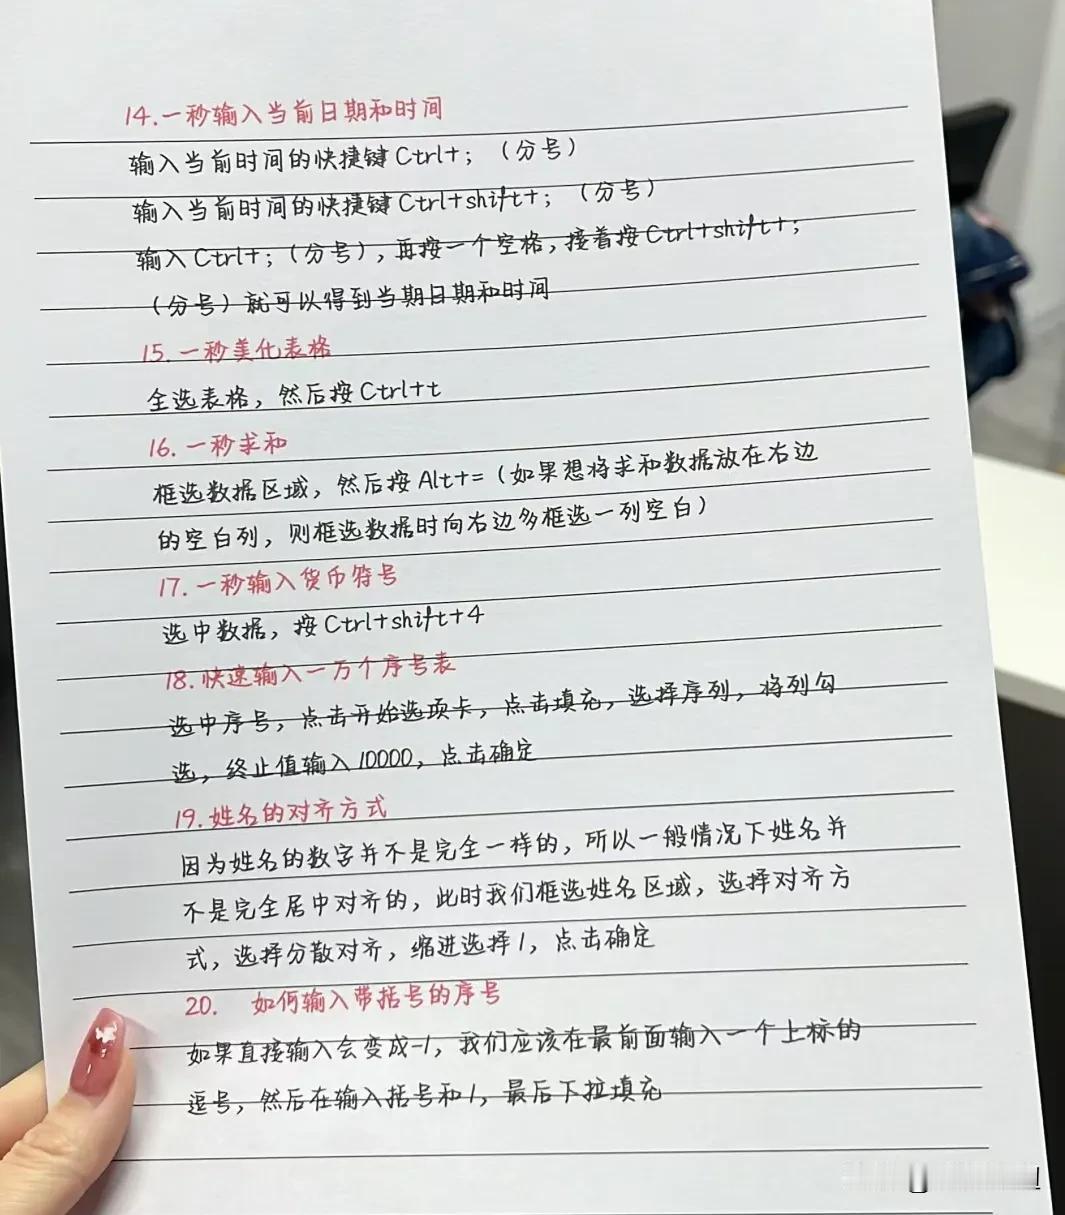 14.一秒输入当前日期和时间
输入当前时间的快捷键Ctrl+;（分号）
输入当前时间的快捷键Ctrl+shift+;（分号）
输入Ctrl+;（分号），再按一个空格，接着按Ctrl+shift+;
（分号）就可以得到当期日期和时间
15.一秒美化表格
全选表格，然后按Ctrl+t
16.一秒求和
框选数据区域，然后按Alt+=（如果想将求和数据放在右边
的空白列，则框选数据时向右边多框选一列空白）
17.一秒输入货币符号
选中数据，按Ctrl+shift+4
18.快速输入一万个序号表
选中序号，点击开始选项卡，点击填充，选择序列，将列勾
选，终止值输入10000，点击确定
19.姓名的对齐方式
因为姓名的数字并不是完全一样的，所以一般情况下姓名并
不是完全居中对齐的，此时我们框选姓名区域，选择对齐方
式，选择分散对齐，缩进选择1，点击确定
20. 如何输入带括号的序号
如果直接输入会变成-1，我们应该在最前面输入一个上标的
逗号，然后在输入括号和1，最后下拉填充